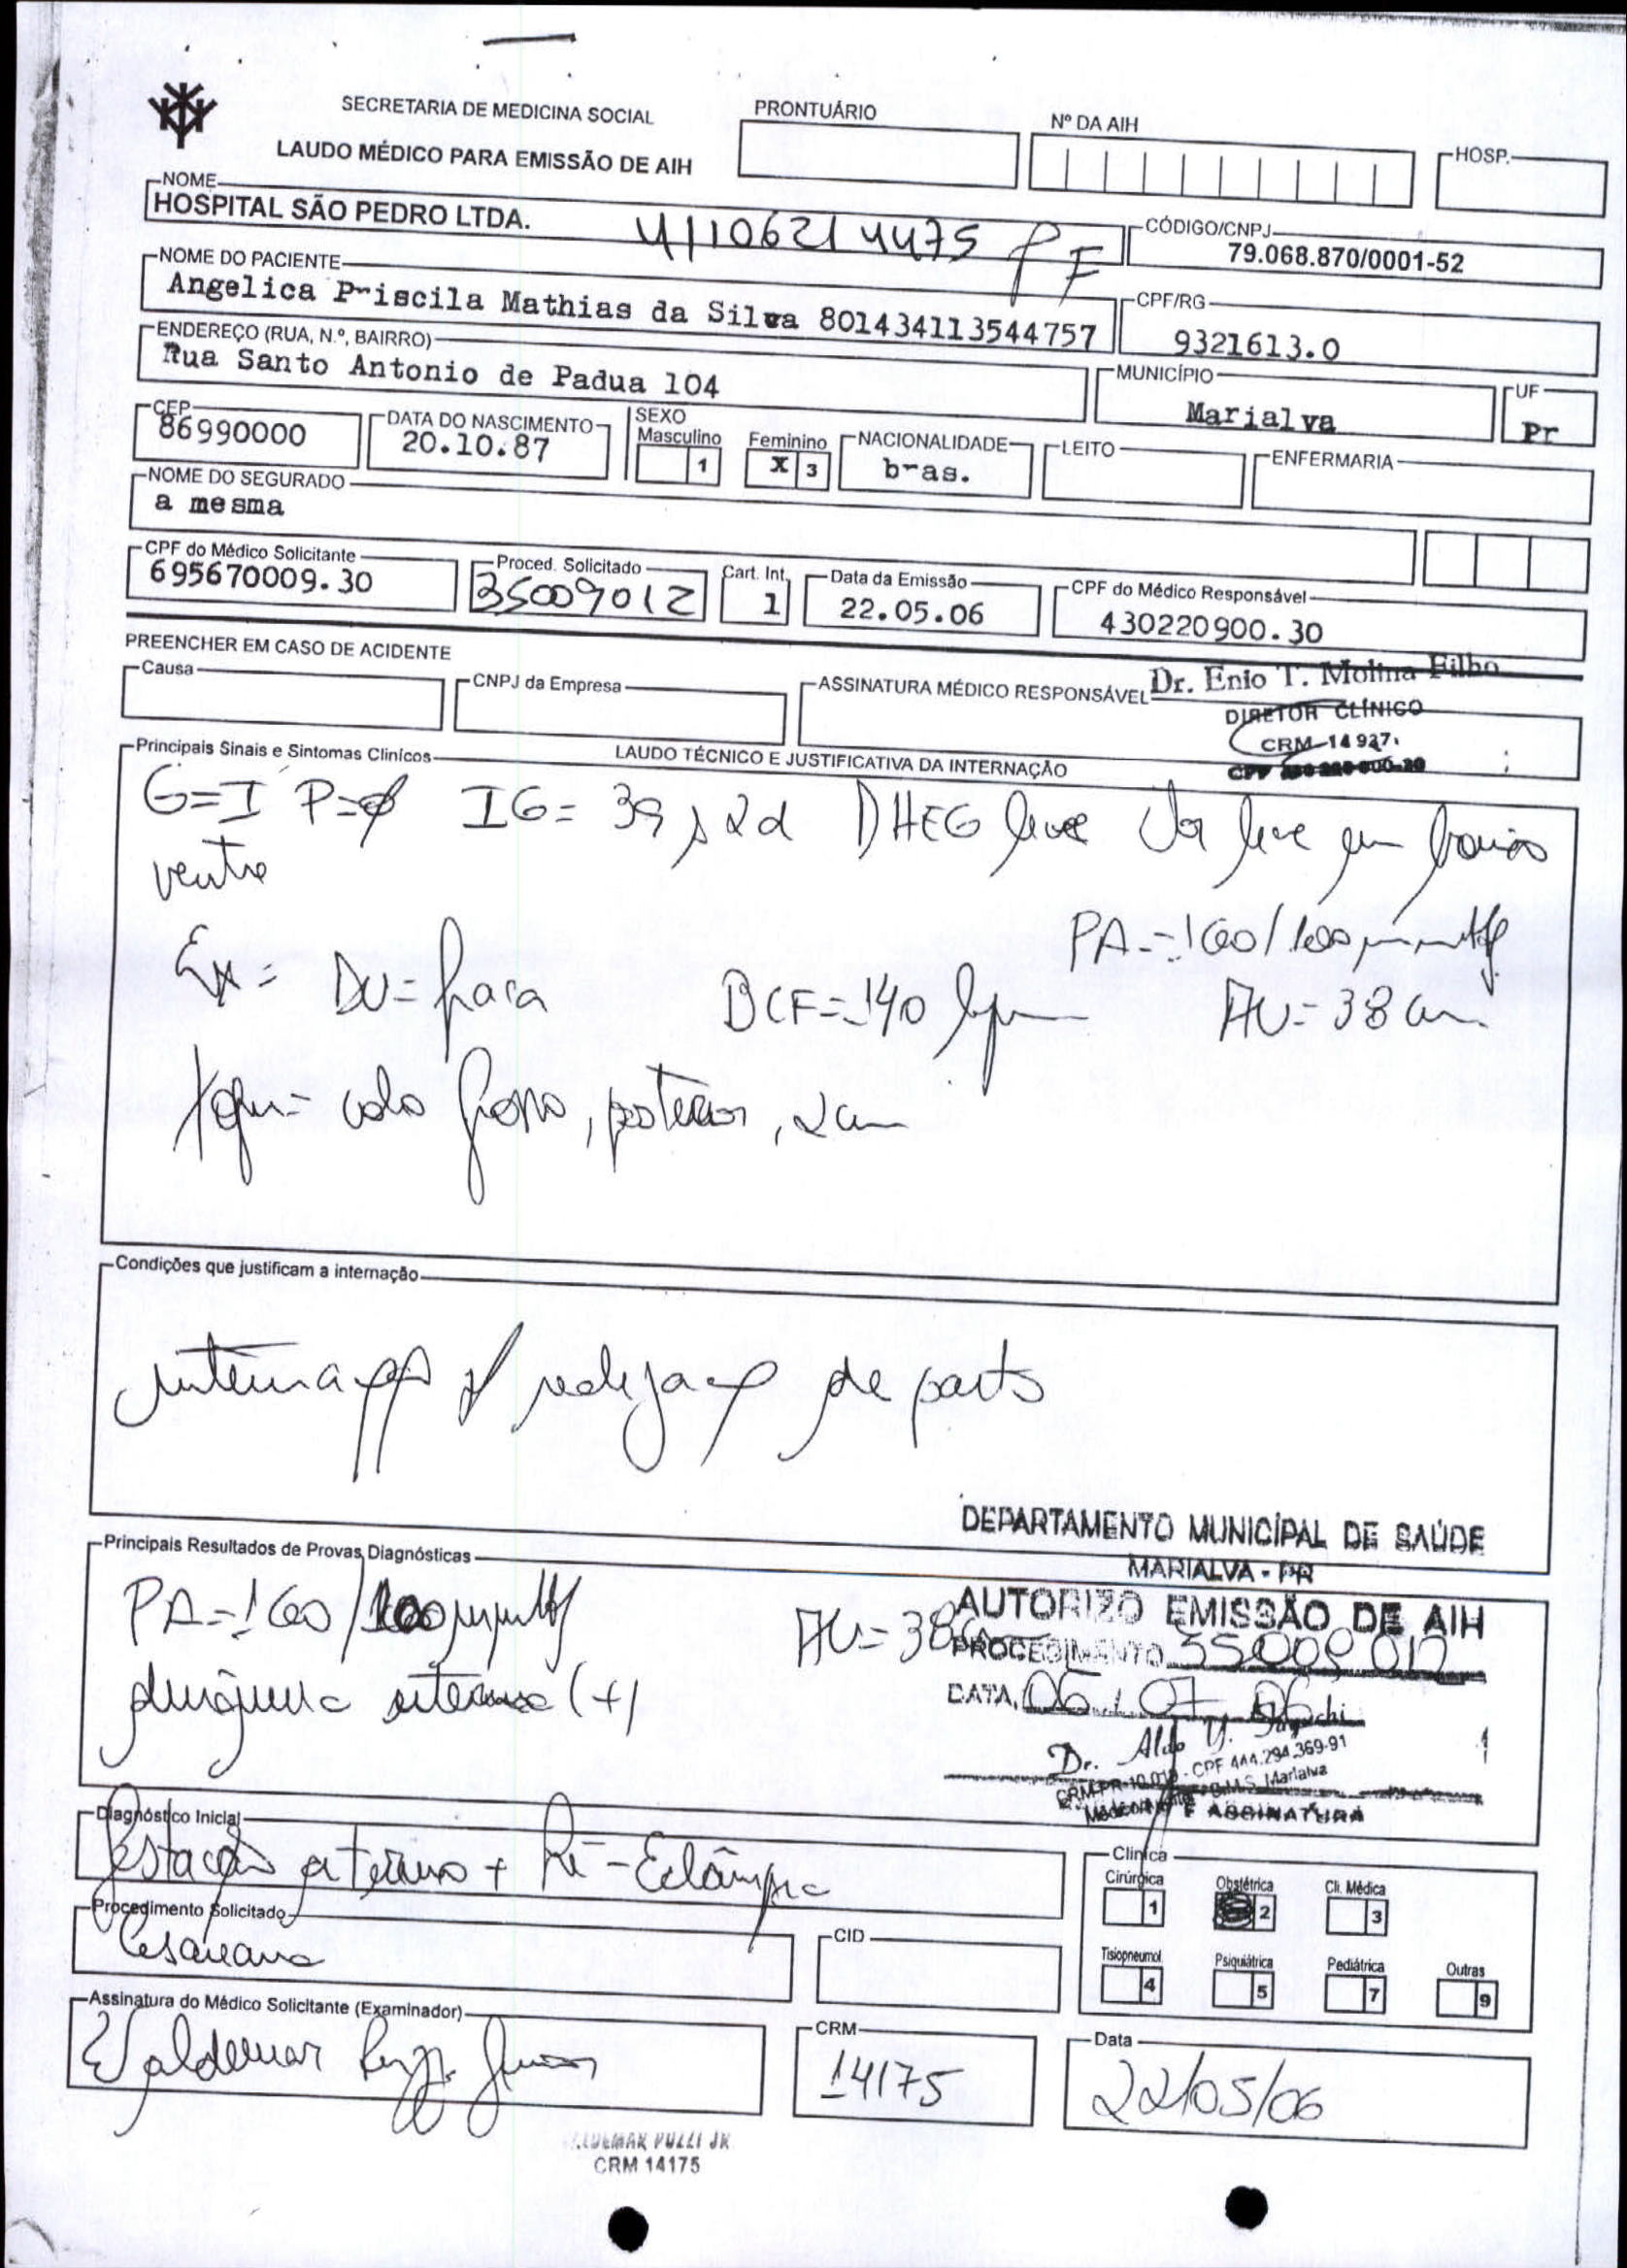 SECRETARIA DE MEDICINA SOCIAL
LAUDO MÉDICO PARA EMISSÃO DE AIH
PRONTUÁRIO
Nº DA AIH
HOSP.
NOME
HOSPITAL SÃO PEDRO LTDA.
41106214475
CÓDIGO/CNPJ
79.068.870/0001-52
NOME DO PACIENTE
Angelica Priscila Mathias da Silva 801434113544757
CPF/RG
9321613.0
ENDEREÇO (RUA, N.º, BAIRRO)
Rua Santo Antonio de Padua 104
MUNICÍPIO
Marialva
UF
Pr
CEP
86990000
DATA DO NASCIMENTO
20.10.87
SEXO
Masculino 1
Feminino X 3
NACIONALIDADE
bras.
LEITO
ENFERMARIA
NOME DO SEGURADO
a mesma
CPF do Médico Solicitante
695670009.30
Proced. Solicitado
35009012
Cart. Int.
1
Data da Emissão
22.05.06
CPF do Médico Responsável
430220900.30
PREENCHER EM CASO DE ACIDENTE
Causa
CNPJ da Empresa
ASSINATURA MÉDICO RESPONSÁVEL
Dr. Enio T. Molina Filho
DIRETOR CLÍNICO
CRM 14927
CPF
Principais Sinais e Sintomas Clinicos
LAUDO TÉCNICO E JUSTIFICATIVA DA INTERNAÇÃO
G=I P=ø IG= 39 s 2d DHEG leve Dor leve em baixo
ventre
PA=160/100 mmHg
Ex= DU= fraca BCF=140 bpm AU=38cm
Toque= colo grosso, posterior, 2cm
Condições que justificam a internação
internação p/ realização de parto
Principais Resultados de Provas Diagnósticas
PA=160/100mmHg AU=38cm
(+)
DEPARTAMENTO MUNICIPAL DE SAÚDE
MARIALVA - PR
AUTORIZO EMISSÃO DE AIH
PROCEDIMENTO 35009012
DATA, 06 / 07 06
Dr. Aldo Y.
CRM-PR 10.019 - CPF 444.294.369-91
D.M.S. Marialva
E ASSINATURA
Diagnóstico Inicial
Gestação a termo + Pré-Eclâmpsia
Procedimento Solicitado
Cesareana
CID
Clinica
Cirúrgica 1
Obstétrica 2
Cli. Médica 3
Tisiopneumol. 4
Psiquiátrica 5
Pediátrica 7
Outras 9
Assinatura do Médico Solicitante (Examinador)
Waldemar Puzzi Junior
CRM
14175
Data
22/05/06
WALDEMAR PUZZI JR
CRM 14175